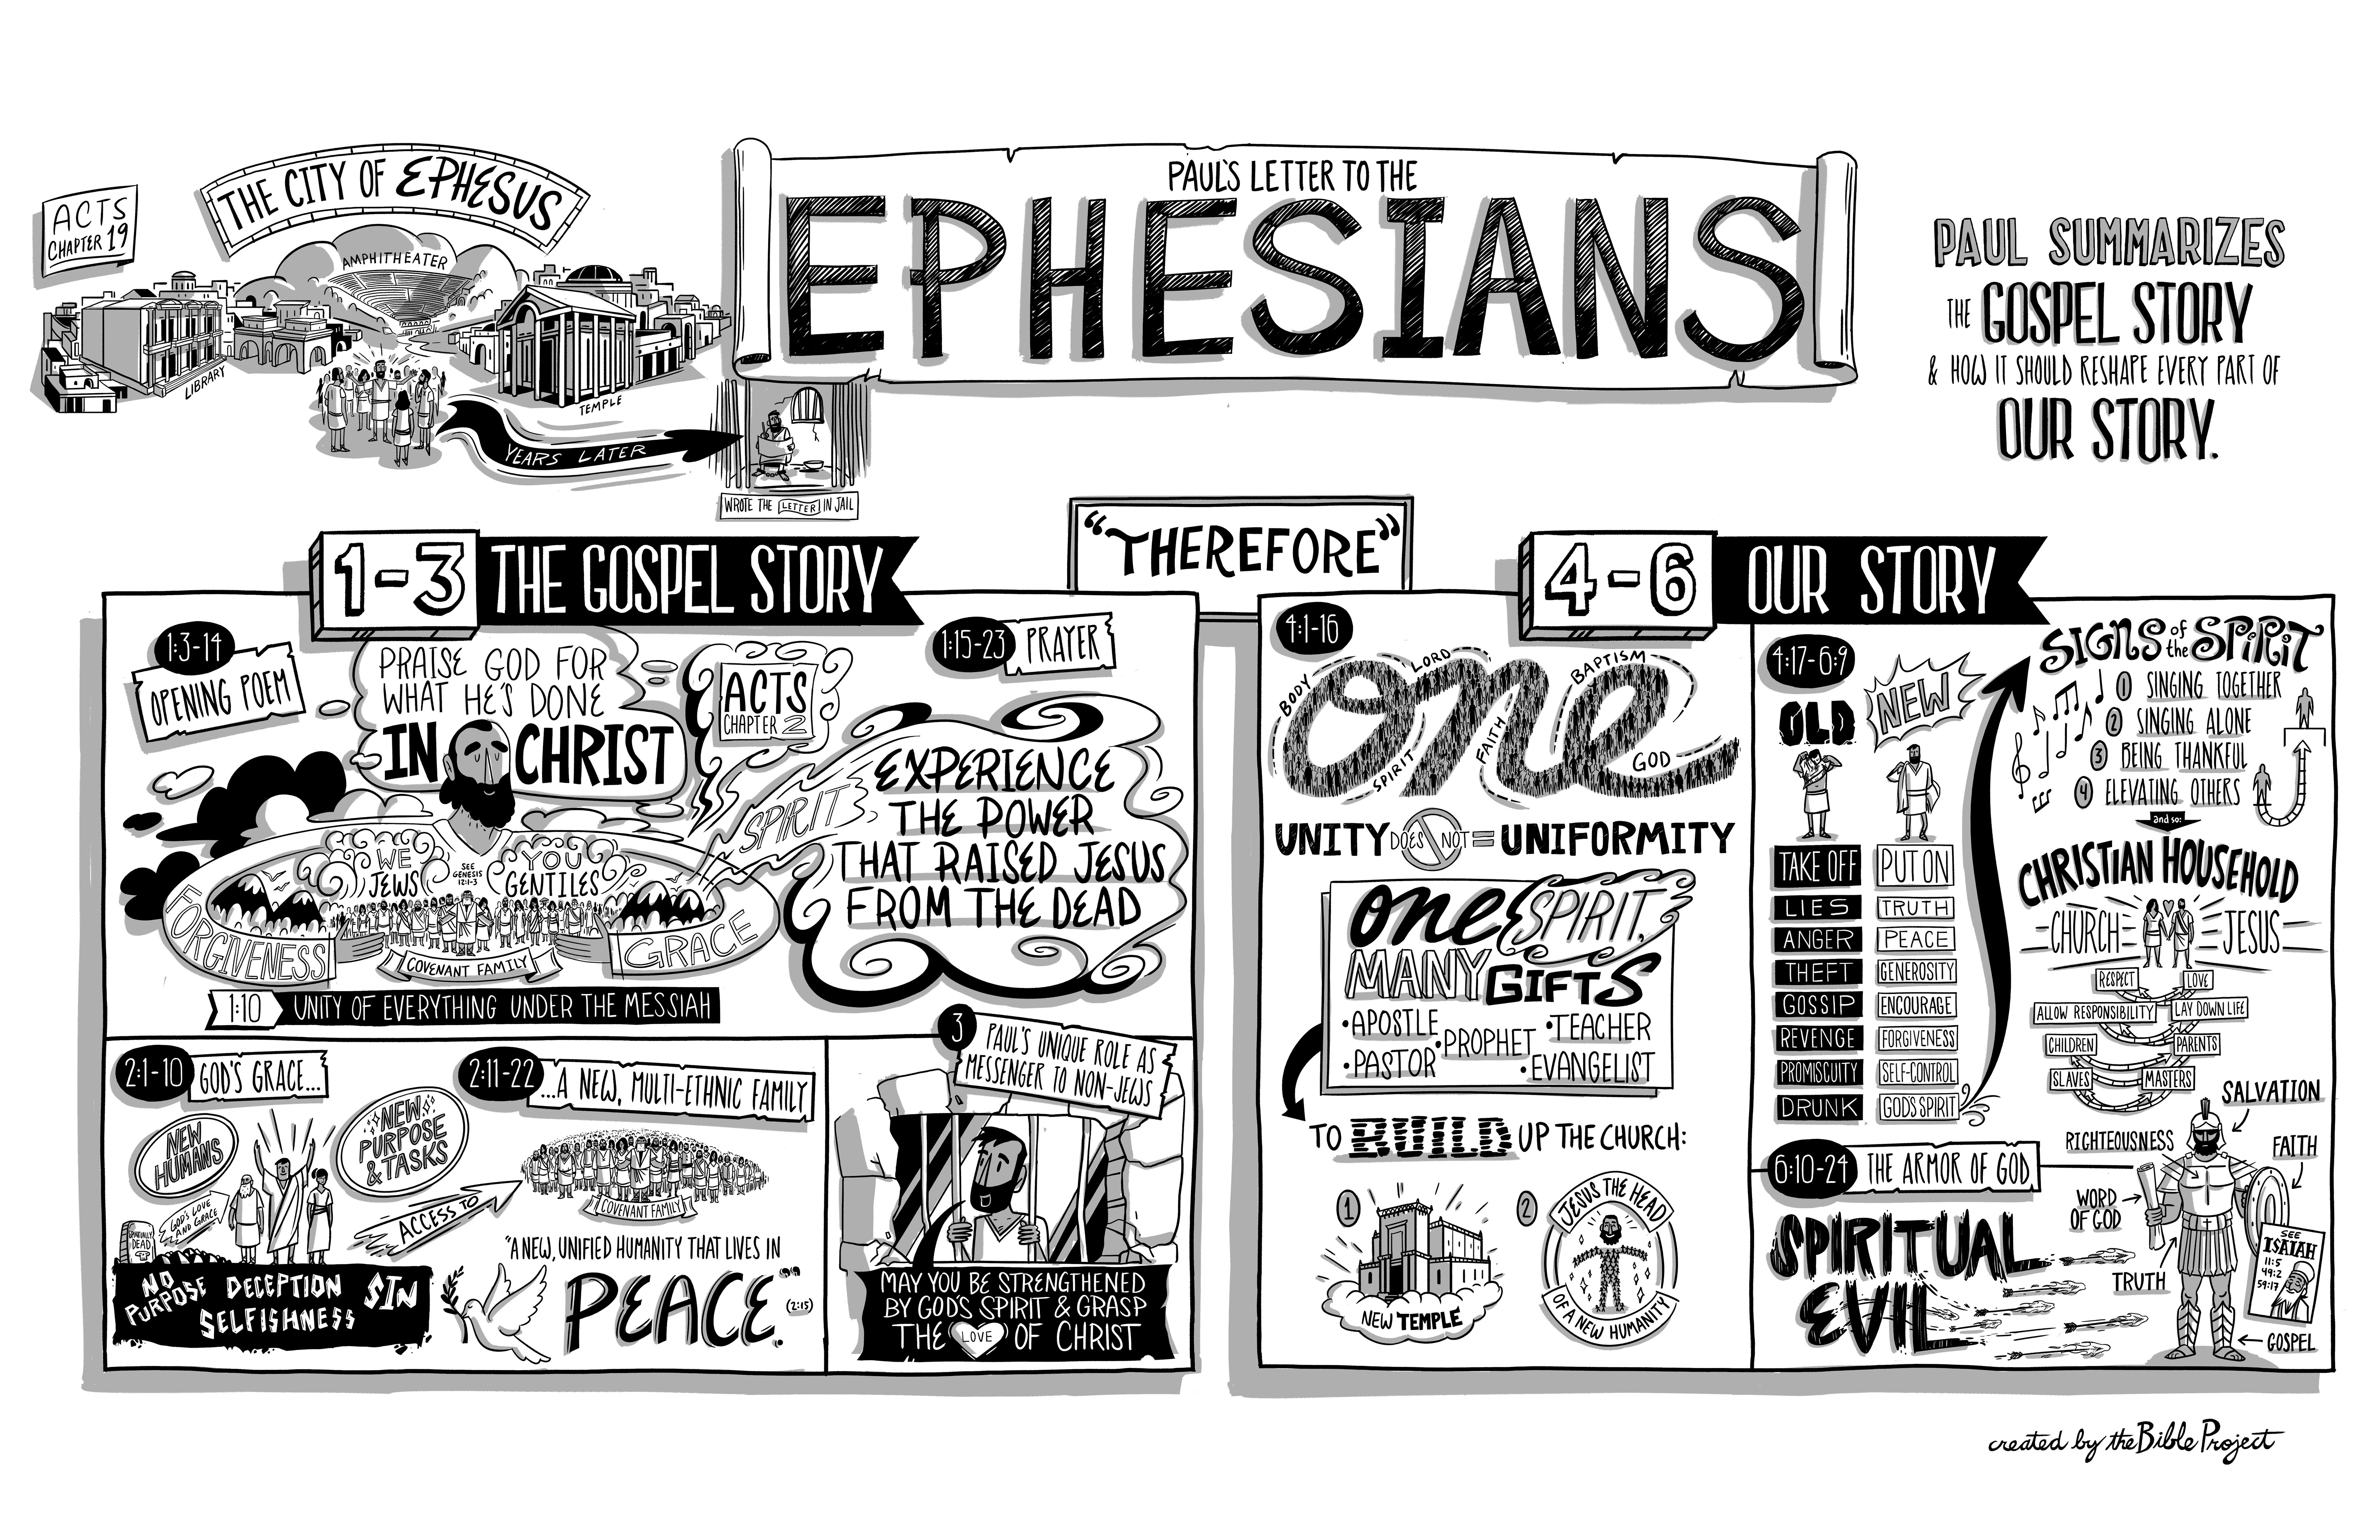 ACTS
CHAPTER 19
THE CITY OF EPHESUS
AMPHITHEATER
LIBRARY
TEMPLE
YEARS LATER
WROTE THE LETTER IN JAIL
PAUL'S LETTER TO THE
EPHESIANS
PAUL SUMMARIZES
THE GOSPEL STORY
& HOW IT SHOULD RESHAPE EVERY PART OF
OUR STORY.
1-3 THE GOSPEL STORY
1:3-14
OPENING POEM
PRAISE GOD FOR
WHAT HE'S DONE
IN CHRIST
ACTS
CHAPTER 2
1:15-23 PRAYER
SPIRIT
EXPERIENCE
THE POWER
THAT RAISED JESUS
FROM THE DEAD
WE
JEWS
SEE
GENESIS
12:1-3
YOU
GENTILES
FORGIVENESS
GRACE
COVENANT FAMILY
1:10 UNITY OF EVERYTHING UNDER THE MESSIAH
2:1-10 GOD'S GRACE...
NEW
HUMANS
NEW
PURPOSE
& TASKS
SPIRITUALLY
DEAD
GOD'S LOVE
AND GRACE
NO
PURPOSE
DECEPTION
SELFISHNESS
SIN
ACCESS TO
2:11-22 ...A NEW, MULTI-ETHNIC FAMILY
COVENANT FAMILY
"A NEW, UNIFIED HUMANITY THAT LIVES IN
PEACE."
(2:15)
3
PAUL'S UNIQUE ROLE AS
MESSENGER TO NON-JEWS
MAY YOU BE STRENGTHENED
BY GOD'S SPIRIT & GRASP
THE LOVE OF CHRIST
"THEREFORE"
4-6 OUR STORY
4:1-16
one
BODY
LORD
BAPTISM
SPIRIT
FAITH
GOD
UNITY DOES NOT = UNIFORMITY
one SPIRIT,
MANY GIFTS
•APOSTLE
•PROPHET
•TEACHER
•PASTOR
•EVANGELIST
TO BUILD UP THE CHURCH:
1
NEW TEMPLE
2
JESUS THE HEAD
OF A NEW HUMANITY
4:17-6:9
OLD
NEW
TAKE OFF PUT ON
LIES TRUTH
ANGER PEACE
THEFT GENEROSITY
GOSSIP ENCOURAGE
REVENGE FORGIVENESS
PROMISCUITY SELF-CONTROL
DRUNK GOD'S SPIRIT
SIGNS of the SPIRIT
1 SINGING TOGETHER
2 SINGING ALONE
3 BEING THANKFUL
4 ELEVATING OTHERS
and so:
CHRISTIAN HOUSEHOLD
CHURCH JESUS
RESPECT LOVE
ALLOW RESPONSIBILITY LAY DOWN LIFE
CHILDREN PARENTS
SLAVES MASTERS
6:10-24 THE ARMOR OF GOD
SPIRITUAL
EVIL
SALVATION
RIGHTEOUSNESS
FAITH
WORD
OF GOD
TRUTH
SEE
ISAIAH
11:5
49:2
59:17
GOSPEL
created by the Bible Project